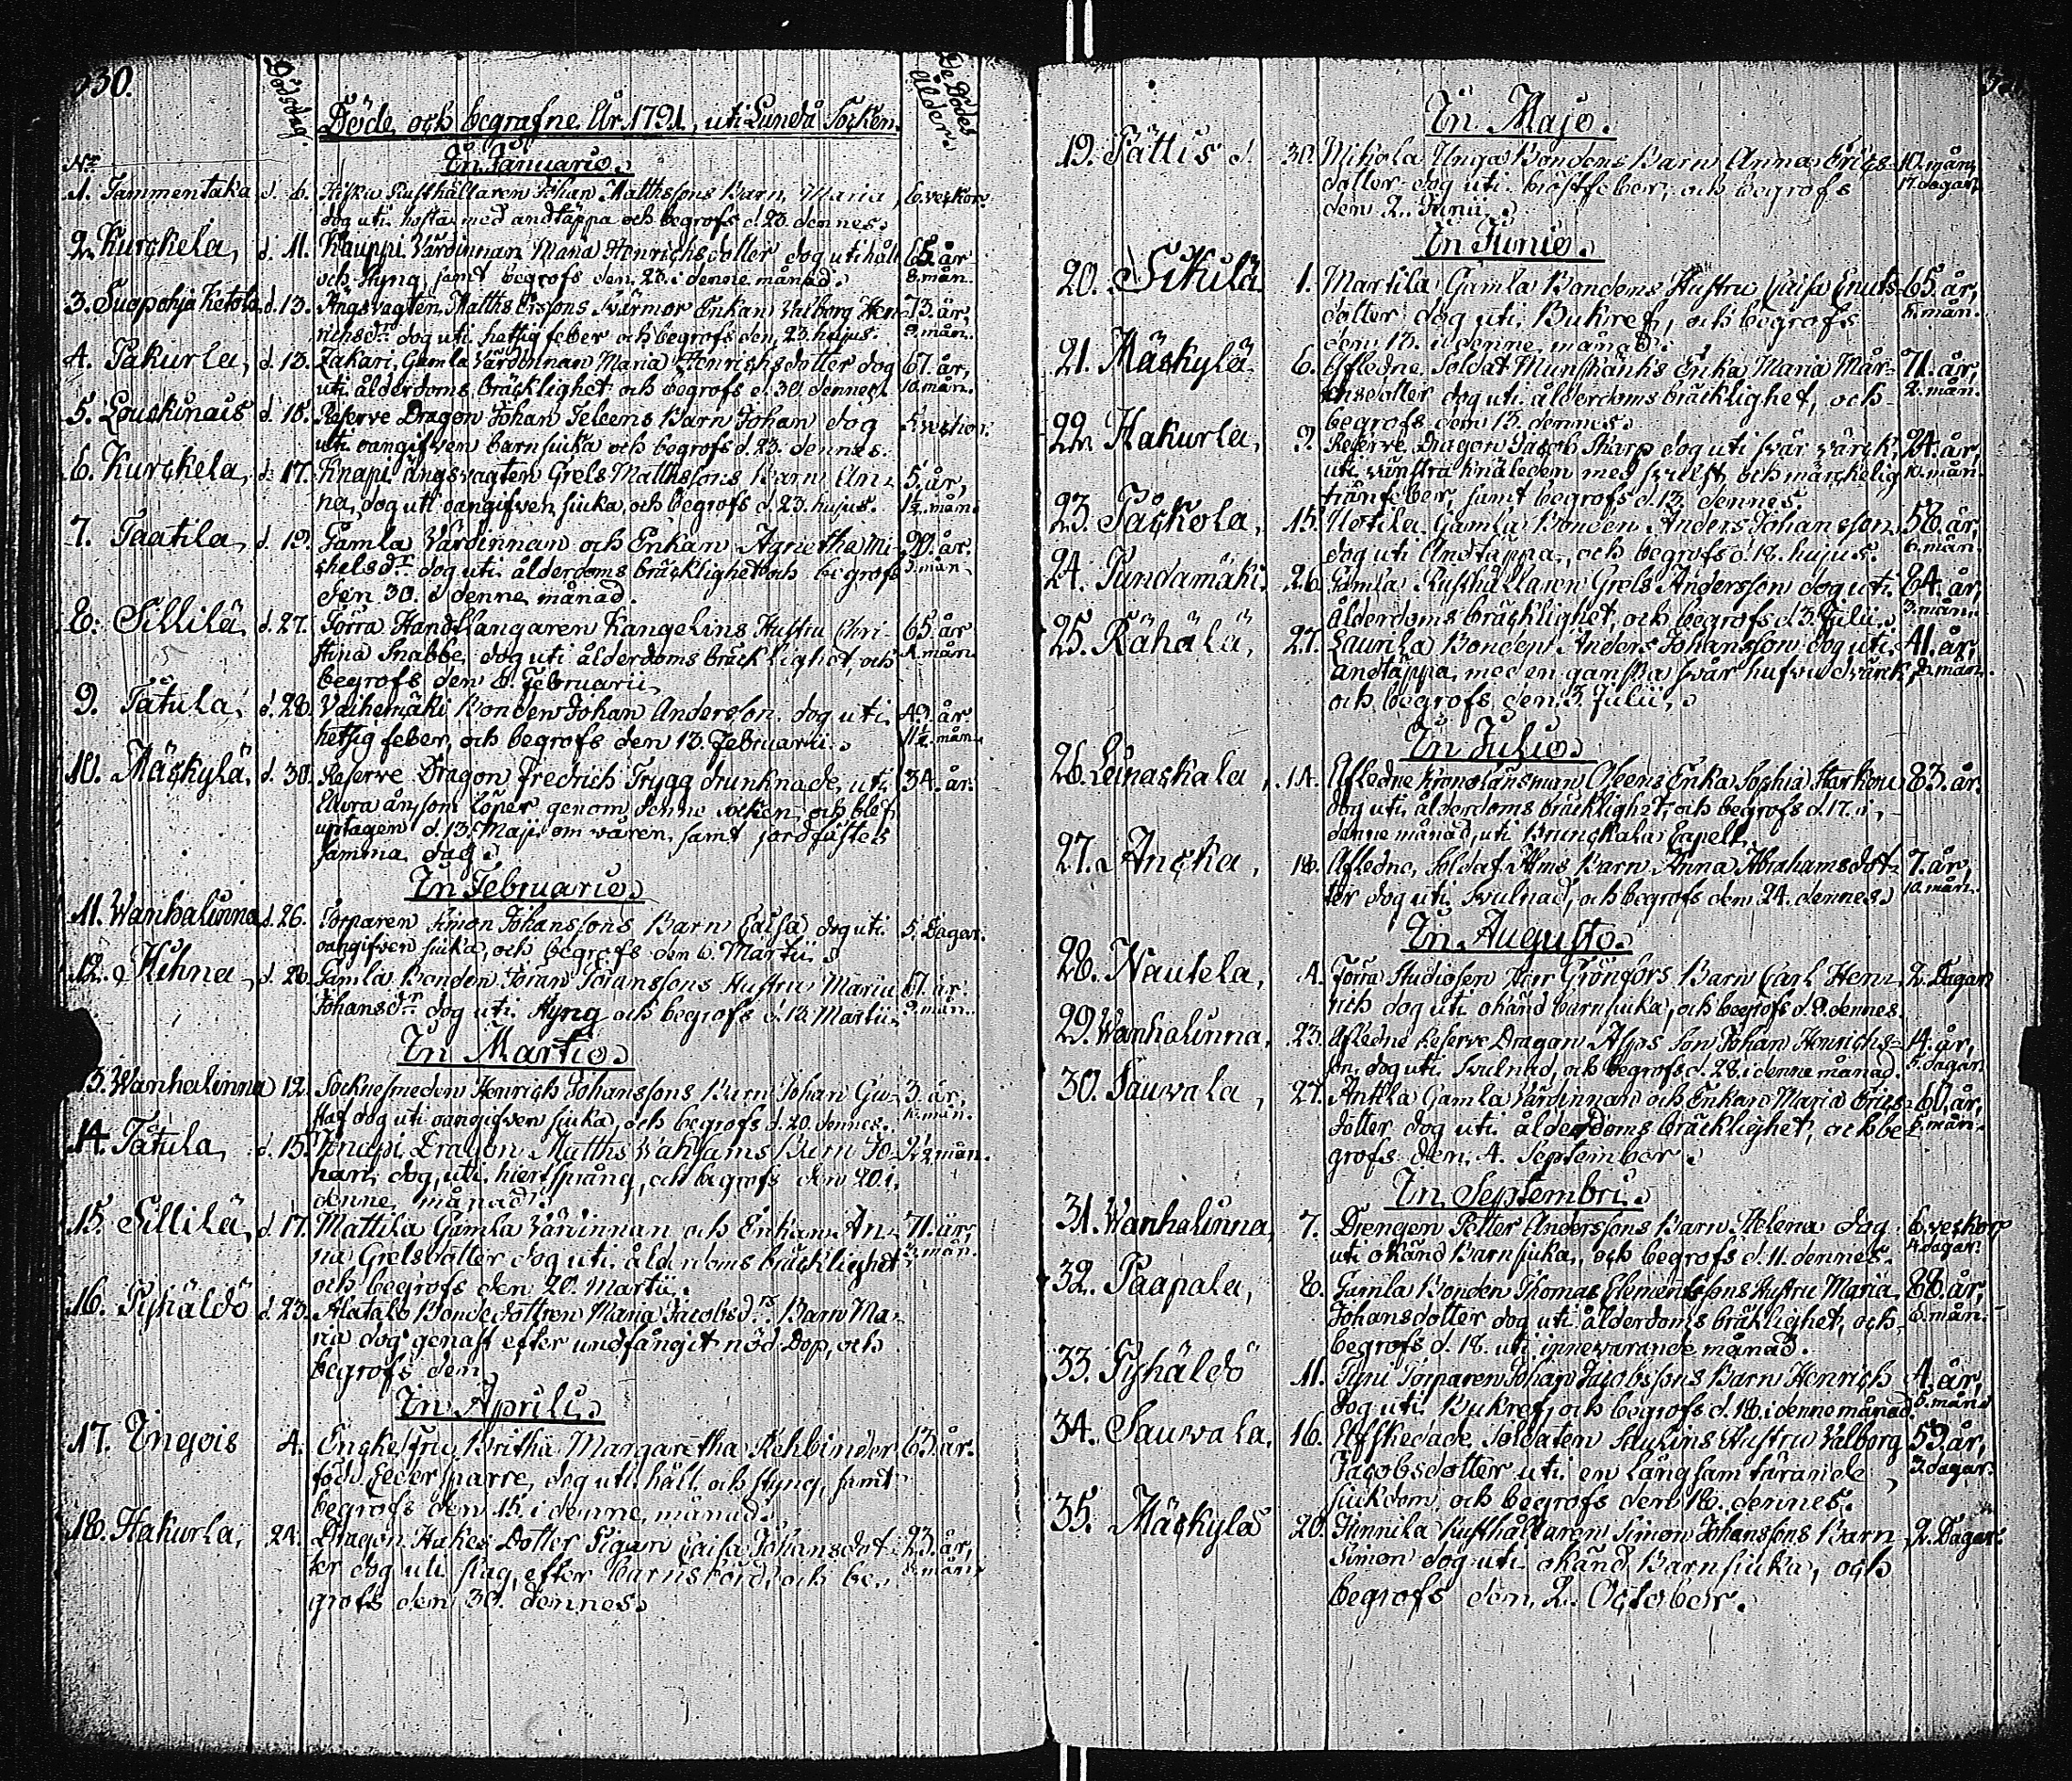 330.
Dödsdag.
De Dödes ålder.
Döde och begrafne År 1791, uti Lundå Socken.
Nr.
In Januario.
1. Tammentaka d. 6. Rusthållaren Johan Matthssons Barn Maria 6. veckor.
dog uti hosta med andtäppa och begrofs d. 23. dennes.
2. Kurckela, d. 11. Kauppi Värdinnan Maria Henrichsdotter dog uti håll 65. år
och styng, samt begrofs den 23. i denne månad. 8. mån.
3. Suopohja Ketola d. 13. Ängsvagten Matths Erssons Svärmor Enkan Valborg Hen- 73. år,
richsdr. dog uti hetsig feber och begrofs den 23. hujus. 9. mån.
4. Hakurla, d. 13. Zakari, Gamla Värdinnan Maria Henrichsdotter dog 67. år,
uti ålderdoms bräcklighet och begrofs d. 30. dennes. 10. mån.
5. Louckinais d. 16. Reserve Dragon Johan Barn Johan dog veckor.
uti oangifven barnsjuka och begrofs d. 23. dennes.
6. Kurckela, d. 17. Knapi Ängsvagten Grels Matthssons Barn An- 5. år,
na, dog uti oangifven sjuka, och begrofs d. 23. hujus. 1½. mån.
7. Taatila, d. 19. Gamla Värdinnan och Enkan Agnetha Mi- 90. år.
chelsdr. dog uti ålderdoms bräcklighet och begrofs 3. mån.
den 30. i denne månad.
8. Sillilä, d. 27. Förra Handtlangaren Kangelins Hustru Chri- 65. år
stina Snabbe, dog uti ålderdoms bräcklighet, och mån.
begrofs den 6. Februarii.
9. Tätula, d. 28. Vaihemäki Bonden Johan Andersson dog uti 49. år.
hetsig feber, och begrofs den 13. Februarii. 11½. mån.
10. Mäskylä, d. 30. Reserve Dragon Fredrich Trygg drunknade uti 34. år.
Aura ån, som löper genom denne socken, och blef
uptagen d. 13. Maji om våren, samt jordfästes
samma dag.
In Februario.
11. Wanhalinna d. 26. Torparen Simon Johanssons Barn Caisa dog uti 5. Dagar.
oangifven sjuka, och begrofs den 6. Martii.
12. Hihna, d. 28. Gamla Bonden Jöran Jöranssons Hustru Maria 67. år
Johansdr. dog uti styng och begrofs d. 13. Martii. 9. mån.
In Martio.
13. Wanhalinna 12. Socknesmeden Henrich Johanssons Barn Johan Gu- 3. år,
staf dog uti oangifven sjuka, och begrofs d. 20. dennes. 10. mån.
14. Tätula, d. 15. Knapi Dragon Matths Barn Jo- 2½. mån.
han, dog uti hiertsprång, och begrofs den 20. i
denne månad.
15. Sillilä, d. 17. Mattila Gamla Värdinnan och Enkan An- 71. år,
na Grelsdotter dog uti ålderdoms bräcklighet mån.
och begrofs den 20. Martii.
16. Pyhäldö d. 23. Alatalo Bondedottren Maria Jacobsdrs. Barn Ma-
ria dog genast efter undfångit nöd Dop, och
begrofs den
In Aprili.
17. Tingois 4. Enckefru Britha Margaretha Rehbinder 63. år.
född Cedersparre, dog uti håll och styng, samt
begrofs den 15. i denne månad.
18. Hakurla, 24. Dragon Hakes Dotter Pigan Caisa Johansdot- 23. år,
ter dog uti slag, efter barnsbörd, och be- 8. mån.
grofs den 30. dennes.
In Majo.
19. Pättis d. 30. Mikola Unga Bondens Barn Anna Erics- 10. mån.
dotter dog uti bröstfeber, och begrofs 17. dagar.
den 2. Junii.
In Junio.
20. Sikilä 1. Martila Gamla Bondens Hustru Caisa Cnuts- 65. år,
dotter dog uti Bukref, och begrofs mån.
den 13. i denne månad.
21. Mäskylä 6. Afledne Soldat Munskänks Enka Maria Mår- 71. år,
tensdotter dog uti ålderdoms bräcklighet, och 2. mån.
begrofs den 13. dennes.
22. Hakurla, 9. Reserve Dragon Jacob Skarp dog uti svår värck 24. år,
uti vänstra knäleden med svulst och märckelig 10. mån.
tränfeber, samt begrofs d. 13. dennes.
23. Päckola, 15. Uotila Gamla Bonden Anders Johansson 58. år,
dog uti Andtäppa, och begrofs d. 18. hujus. 6. mån.
24. Pundamäki, 26. Gamla Rusthållaren Grels Andersson dog uti 64. år,
ålderdoms bräcklighet, och begrofs d. 3. Julii. 3. mån.
25. Rähälä, 27. Laurila Bonden Anders Johansson dog uti 41. år,
andtäppa, med en ganska svår hufvudvärck, mån.
och begrofs den 3. Julii.
In Julio.
26. Leinaskala, 14. Afledne Kronolänsman Enka Sophia Starkou 83. år.
dog uti ålderdoms bräcklighet, och begrofs d. 17. i
denne månad, uti Brunckala Capell.
27. Ancka, 18. Afledne Soldat Barn Anna Abrahamsdot- 7. år,
ter dog uti svulnad, och begrofs den 24. dennes. 10. mån.
In Augusto.
28. Nautela, 4. Förra Studiosen Herr Grönfors Barn Carl Hen- 2. Dagar
rich dog uti okänd barnsjuka, och begrofs d. 9. dennes.
29. Wanhalinna, 23. Afledne Reserve Dragon Asps Son Johan Henrichs- 14. år,
son, dog uti svulnad, och begrofs d. 28. i denne månad. 5. dagar.
30. Sauvala, 27. Anttla Gamla Värdinnan och Enkan Maria Erics- 60. år,
dotter dog uti ålderdoms bräcklighet, och be- 6. mån.
grofs den 4. September.
In Septembri.
31. Wanhalinna 7. Drengen Petter Anderssons Barn Helena dog 6. veckor
uti okänd Barnsjuka, och begrofs d. 11. dennes. 4. dagar.
32. Paapala, 8. Gamla Bonden Thomas Clementssons Hustru Maria 88. år,
Johansdotter dog uti ålderdoms bräklighet, och 6. mån.
begrofs d. 18. uti innevarande månad.
33. Pyhäldö 11. Pyni Torparen Johan Jacobssons Barn Henrich 4. år,
dog uti Bukref, och begrofs d. 18. i denne månad. 5. mån.
34. Sauvala, 16. Afskedade Soldaten Hustru Valborg 59. år,
Jacobsdotter uti en långsam tärande 3. dagar.
sjukdom, och begrofs den 18. dennes.
35. Mäskylä 20. Junnila Rusthållaren Simon Johanssons Barn 2. Dagar.
Simon dog uti okänd Barnsjuka, och
begrofs den 2. October.